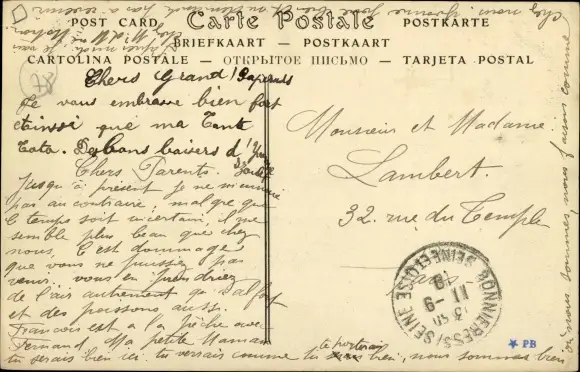 Carte Postale
POST CARD
POSTKARTE
BRIEFKAART — POSTKAART
CARTOLINA POSTALE — ОТКРЫТОЕ ПИСЬМО — TARJETA POSTAL
78
Chers Grand
Je vous embrasse bien fort
ainssi que ma Tante
Toto. De bons baisers d'
Chers Parents.
Jusqu'à présent je ne m'ennuie
pas au contraire, malgré que
le temps soit incertain, il me
semble plus beau que chez
nous, C'est dommage
que vous ne puissiez pas
venir. vous en prendriez
de l'air autrement qu'à
et des poissons aussi.
François est à la pêche avec
Fernand. Ma petite Maman
tu serais bien ici, tu verrais comme tu te porterais bien, nous sommes bien
où nous sommes, nous faisons comme
chez nous
Monsieur et Madame
Lambert.
32. rue du Temple
BONNIERES S/SEINE
SEINE ET OISE
11 -9
PB